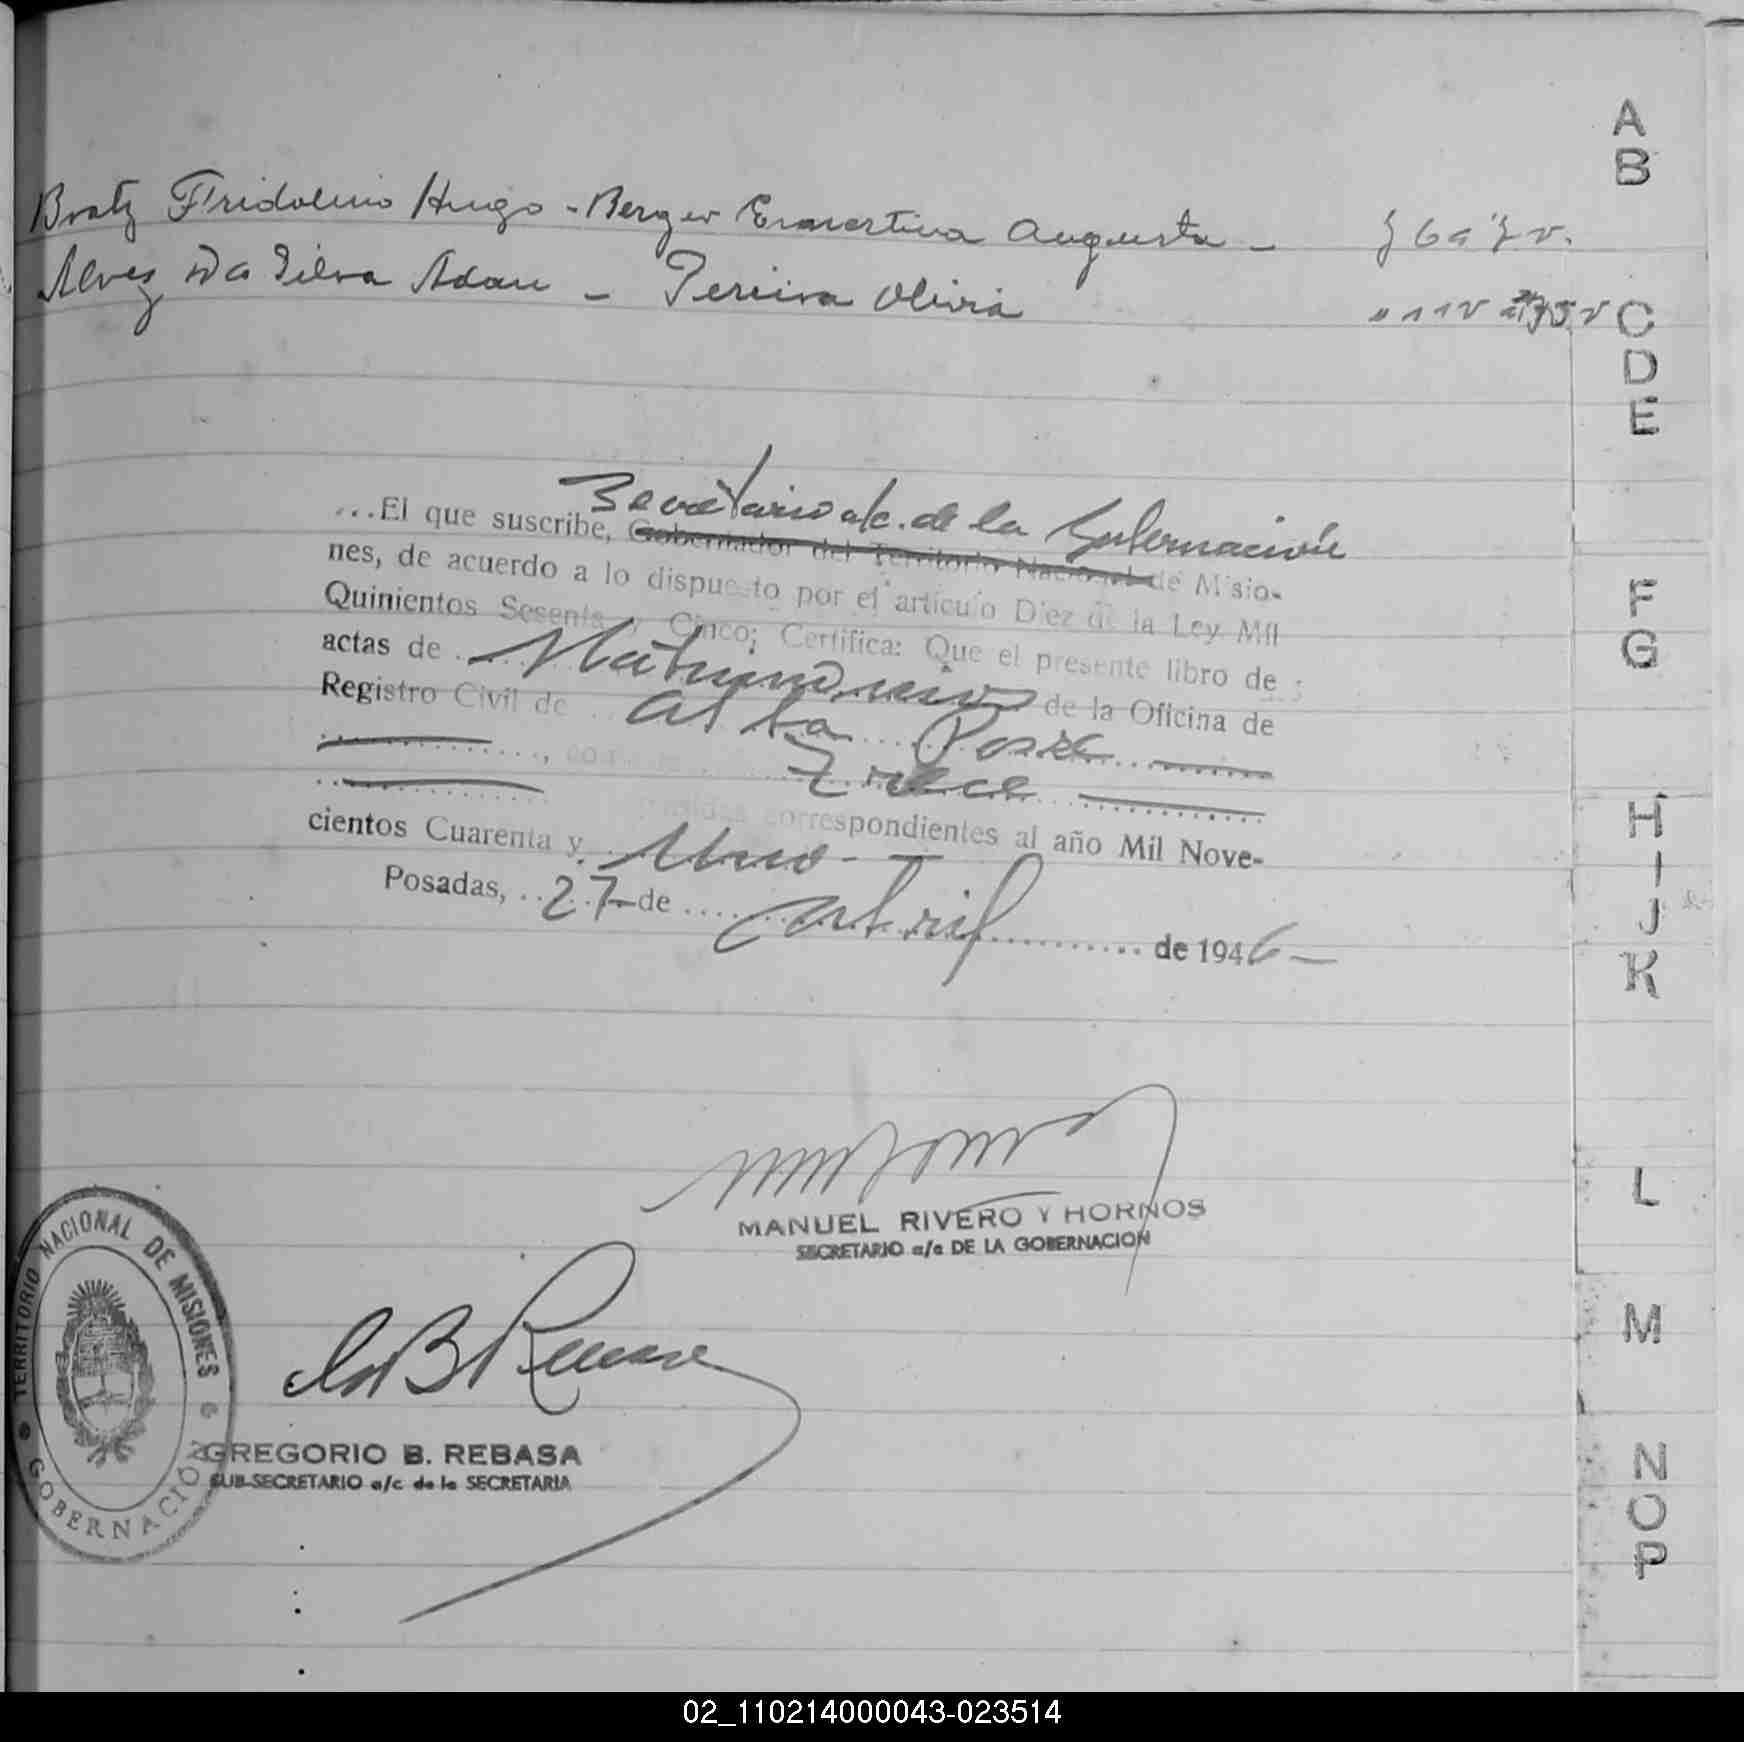 Bratz Fridolino Hugo - Berger Ernestina Augusta - f 6 a 7 v.
Alves Da Silva Adan - Pereira Olivia " 11 v
Secretario a/c. de la Gobernación
...El que suscribe, Gobernador del Territorio Nacional de Misio-
nes, de acuerdo a lo dispuesto por el artículo Diez de la Ley Mil
Quinientos Sesenta y Cinco; Certifica: Que el presente libro de
actas de Matrimonios de la Oficina de
Registro Civil de Alba Posse
Trece
correspondientes al año Mil Nove-
cientos Cuarenta y Uno -
Posadas, 27 de Abril de 1946 -
MANUEL RIVERO Y HORNOS
SECRETARIO a/c DE LA GOBERNACION
TERRITORIO NACIONAL DE MISIONES
GOBERNACIÓN
GREGORIO B. REBASA
SUB-SECRETARIO a/c de la SECRETARIA
A
B
C
D
E
F
G
H
I
J
K
L
M
N
O
P
02_110214000043-023514